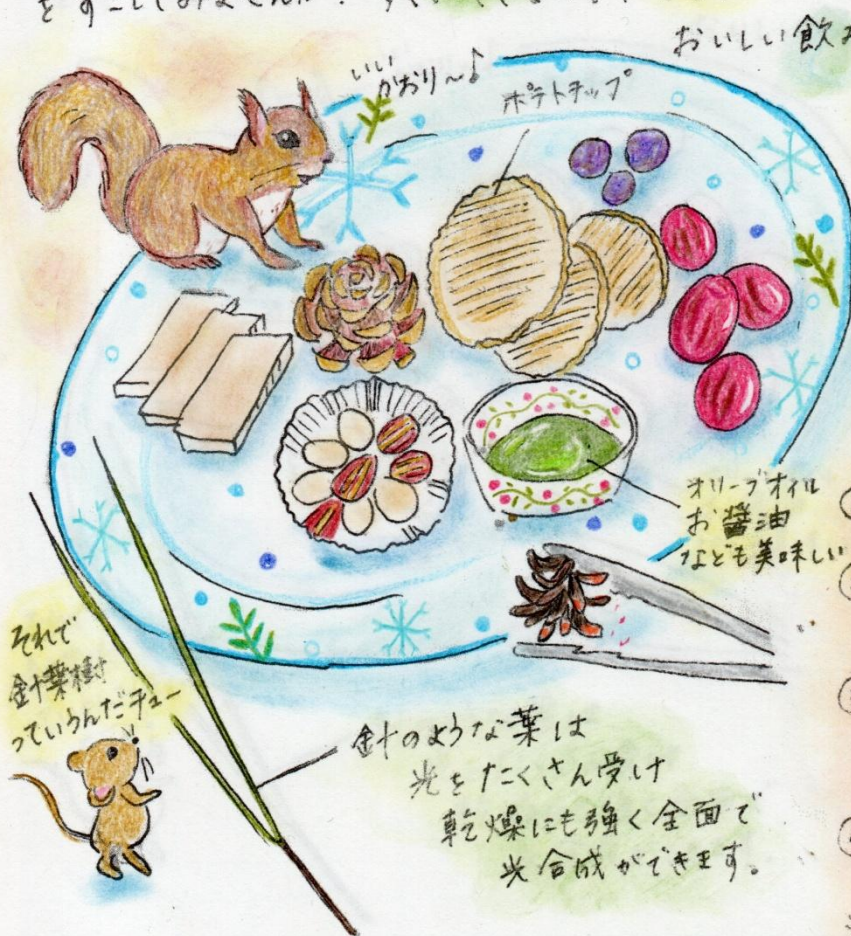 をすごしてみませんか?
おいしい飲み
いい
かおり〜♪
ポテトチップ
オリーブオイル
お醤油
なども美味しい
それで
針葉樹
っていうんだチュー
針のような葉は
光をたくさん受け
乾燥にも強く全面で
光合成ができます。